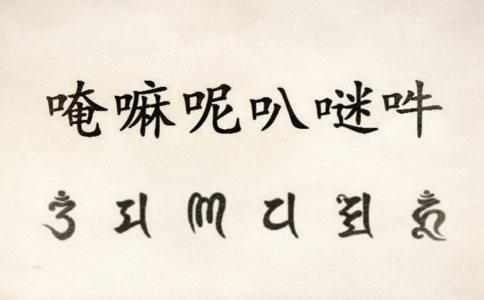 唵嘛呢叭吽
𑖌𑖼 𑖦 𑖜𑖰 𑖢 𑖟𑖿𑖦𑖸 𑖮𑖳𑖼